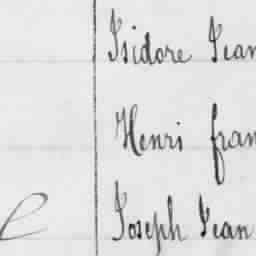 Isidore Jean
Henri fran
Joseph Jean